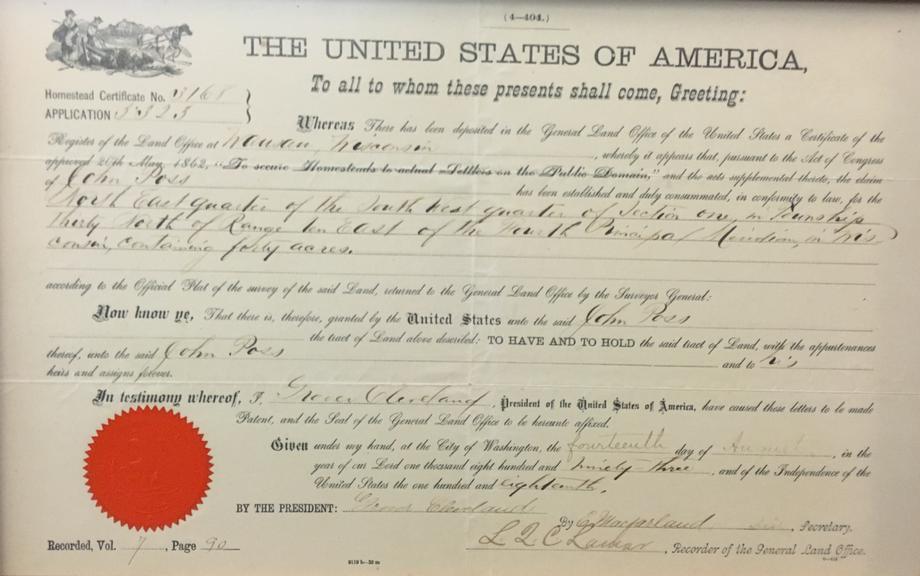 (4—404.)
THE UNITED STATES OF AMERICA,
To all to whom these presents shall come, Greeting:
Homestead Certificate No. 3168
APPLICATION 5323
Whereas There has been deposited in the General Land Office of the United States a Certificate of the
Register of the Land Office at Wausau, Wisconsin, whereby it appears that, pursuant to the Act of Congress
approved 20th May, 1862, "To secure Homesteads to actual Settlers on the Public Domain," and the acts supplemental thereto, the claim
of John Poss has been established and duly consummated, in conformity to law, for the
North East quarter of the South West quarter of Section one, in Township
thirty North of Range ten East of the Fourth Principal Meridian, in Wis
consin, containing forty acres.
according to the Official Plat of the survey of the said Land, returned to the General Land Office by the Surveyor General:
Now know ye, That there is, therefore, granted by the United States unto the said John Poss
the tract of Land above described: TO HAVE AND TO HOLD the said tract of Land, with the appurtenances
thereof, unto the said John Poss and to his
heirs and assigns forever.
In testimony whereof, I, Grover Cleveland, President of the United States of America, have caused these letters to be made
Patent, and the Seal of the General Land Office to be hereunto affixed.
Given under my hand, at the City of Washington, the fourteenth day of August, in the
year of our Lord one thousand eight hundred and ninety-three, and of the Independence of the
United States the one hundred and eighteenth.
BY THE PRESIDENT: Grover Cleveland
By E Macfarland Secretary.
L Q C Lamar, Recorder of the General Land Office.
Recorded, Vol. 7, Page 90